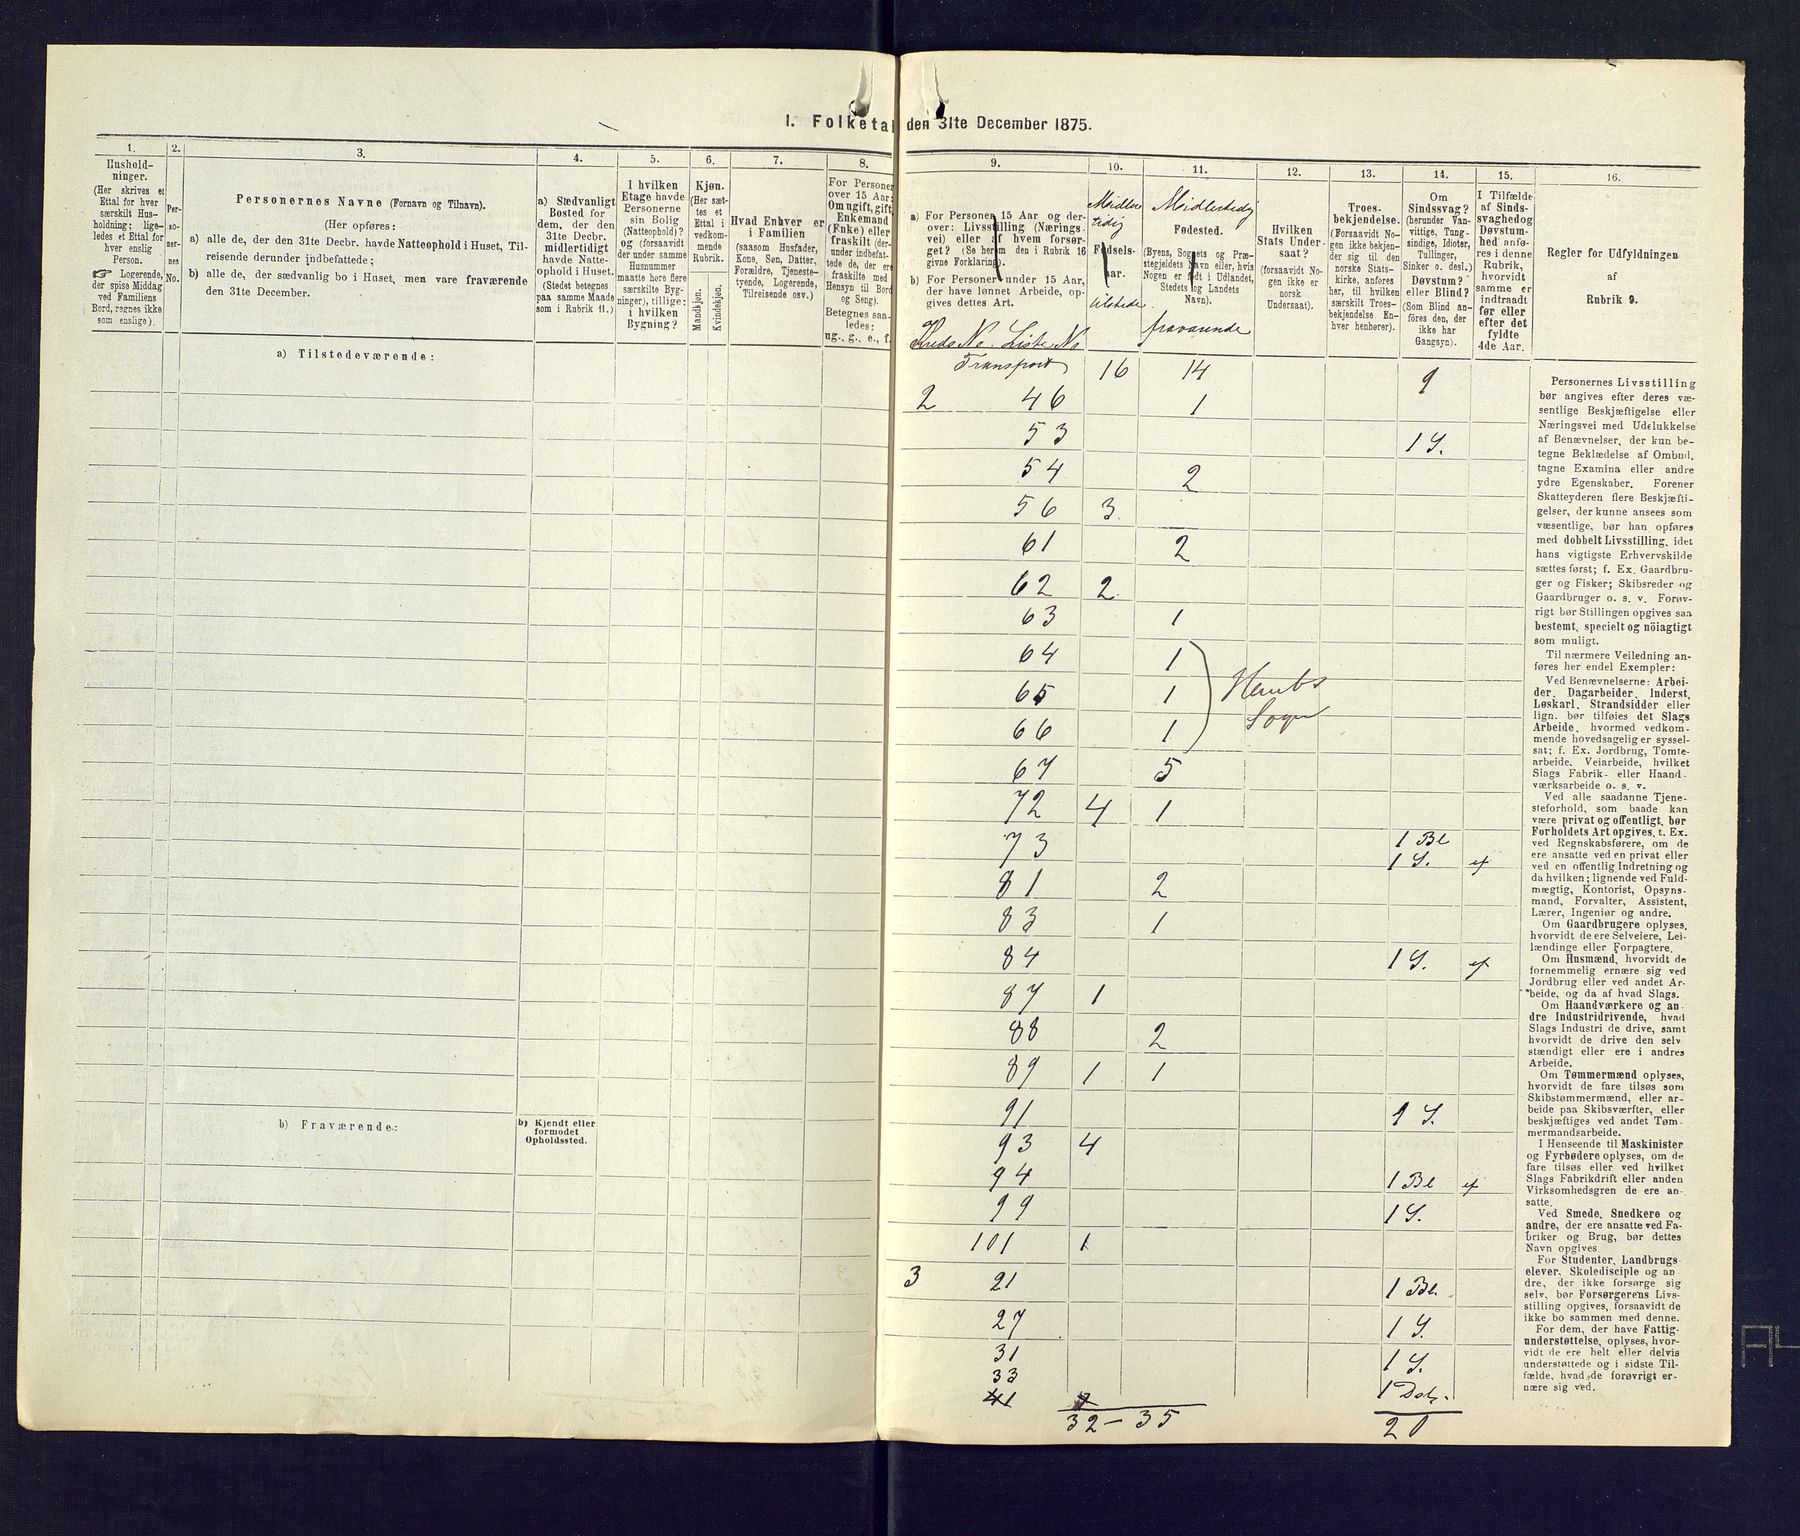 I. Folketal den 31te December 1875.
1.
Hushold-
ninger.
(Her skrives et
Ettal for hver
særskilt Hus-
holdning; lige-
ledes et Ettal for
hver enslig
Person.
☞ Logerende,
der spise Middag
ved Familiens
Bord, regnes ikke
som enslige).
2.
Per-
so-
ner-
nes
No.
3.
Personernes Navne (Fornavn og Tilnavn).
(Her opføres:
a) alle de, der den 31te Decbr. havde Natteophold i Huset, Til-
reisende derunder indbefattede;
b) alle de, der sædvanlig bo i Huset, men vare fraværende
den 31te December.
4.
a) Sædvanligt
Bosted for
dem, der den
31te Decbr.
midlertidigt
havde Natte-
ophold i Huset.
(Stedet betegnes
paa samme Maade
som i Rubrik 11.)
5.
I hvilken
Etage havde
Personerne
sin Bolig
(Natteophold)?
og (forsaavidt
der under samme
Husnummer
maatte høre flere
særskilte Byg-
ninger), tillige:
i hvilken
Bygning?
6.
Kjøn.
(Her sæt-
tes et
Ettal i
vedkom-
mende
Rubrik.
Mandkjøn.
Kvindekjøn.
7.
Hvad Enhver er
i Familien
(saasom Husfader,
Kone, Søn, Datter,
Forældre, Tjeneste-
tyende, Logerende,
Tilreisende osv.)
8.
For Personer
over 15 Aar:
Om ugift, gift,
Enkemand
(Enke) eller
fraskilt (der-
under indbefat-
tede de, der ere
fraskilte med
Hensyn til Bord
og Seng).
Betegnes saa-
ledes:
ug., g., e., f.
a) Tilstedeværende:
b) Fraværende:
b) Kjendt eller
formodet
Opholdssted.
9.
a) For Personer 15 Aar og der-
over: Livsstilling (Nærings-
vei) eller af hvem forsør-
get? (Se herom den i Rubrik 16
givne Forklaring).
b) For Personer under 15 Aar,
der have lønnet Arbeide, op-
gives dettes Art.
Kreds No. Liste No
10.
Midler
tidig
Fødsels-
aar.
tilstede
11.
Midlertidig
Fødested.
(Byens, Sognets og Præ-
stegjeldets Navn eller, hvis
Nogen er født i Udlandet,
Stedets og Landets
Navn).
fraværende
12.
Hvilken
Stats Under-
saat?
(forsaavidt No-
gen ikke er
norsk
Undersaat).
13.
Troes-
bekjendelse.
(Forsaavidt No-
gen ikke bekjen-
der sig til den
norske Stats-
kirke, anføres
her, til hvilken
særskilt Troes-
bekjendelse En-
hver henhører).
14.
Om
Sindssvag?
(herunder Van-
vittige, Tung-
sindige, Idioter,
Tullinger,
Sinker o. desl.)
Døvstum?
eller Blind?
(Som Blind an-
føres den, der
ikke har
Gangsyn).
15.
I Tilfælde
af Sinds-
svaghed og
Døvstum-
hed anfø-
res i denne
Rubrik,
hvorvidt
samme er
indtraadt
før eller
efter det
fyldte
4de Aar.
16.
Regler for Udfyldningen
af
Rubrik 9.
Transport 16 14 9
2 46 1
53 1 S.
54 2
56 3
61 2
62 2
63 1
64 1
65 1 Hembs
66 1 Sogn
67 5
72 4 1
73 1 Bl
1 S. ef
81 2
83 1
84 1 S. ef
87 1
88 2
89 1 1
91 1 S.
93 4
94 1 Bl ef
99 1 S.
101 1
3 21 1 Bl.
27 1 S.
31 1 S.
33 1 Døv.
41
32 - 35 20
Personernes Livsstilling
bør angives efter deres væ-
sentlige Beskjæftigelse eller
Næringsvei med Udelukkelse
af Benævnelser, der kun be-
tegne Beklædelse af Ombud,
tagne Examina eller andre
ydre Egenskaber. Forener
Skatteyderen flere Beskjæfti-
gelser, der kunne ansees som
væsentlige, bør han opføres
med dobbelt Livsstilling, idet
hans vigtigste Erhvervskilde
sættes først; f. Ex. Gaardbru-
ger og Fisker; Skibsreder og
Gaardbruger o. s. v. Forøv-
rigt bør Stillingen opgives saa
bestemt, specielt og nöiagtigt
som muligt.
Til nærmere Veiledning an-
føres her endel Exempler:
Ved Benævnelserne: Arbei-
der, Dagarbeider, Inderst,
Løskarl, Strandsidder eller
lign. bør tilføies det Slags
Arbeide, hvormed vedkom-
mende hovedsagelig er syssel-
sat; f. Ex. Jordbrug, Tomte-
arbeide, Veiarbeide, hvilket
Slags Fabrik- eller Haand-
værksarbeide o. s. v.
Ved alle saadanne Tjene-
steforhold, som baade kan
være privat og offentligt, bør
Forholdets Art opgives, t. Ex.
ved Regnskabsførere, om de
ere ansatte ved en privat eller
ved en offentlig Indretning og
da hvilken; lignende ved Fuld-
mægtig, Kontorist, Opsyns-
mand, Forvalter, Assistent,
Lærer, Ingeniør og andre.
Om Gaardbrugere oplyses,
hvorvidt de ere Selveiere, Lei-
lændinge eller Forpagtere.
Om Husmænd, hvorvidt de
fornemmelig ernære sig ved
Jordbrug eller ved andet Ar-
beide, og da af hvad Slags.
Om Haandværkere og an-
dre Industridrivende, hvad
Slags Industri de drive, samt
hvorvidt de drive den selv-
stændigt eller ere i andres
Arbeide.
Om Tømmermænd oplyses,
hvorvidt de fare tilsøs som
Skibstømmermænd, eller ar-
beide paa Skibsværfter, eller
beskjæftiges ved andet Tøm-
mermandsarbeide.
I Henseende til Maskinister
og Fyrbødere oplyses, om de
fare tilsøs eller ved hvilket
Slags Fabrikdrift eller anden
Virksomhedsgren de ere an-
satte.
Ved Smede, Snedkere og
andre, der ere ansatte ved Fa-
briker og Brug, bør dettes
Navn opgives.
For Studenter, Landbrugs-
elever, Skoledisciple og an-
dre, der ikke forsørge sig
selv, bør Forsørgerens Livs-
stilling opgives, forsaavidt de
ikke bo sammen med denne.
For dem, der have Fattig-
understøttelse, oplyses, hvor-
vidt de ere helt eller delvis
understøttede og i sidste Til-
fælde, hvad de forøvrigt er-
nære sig ved.